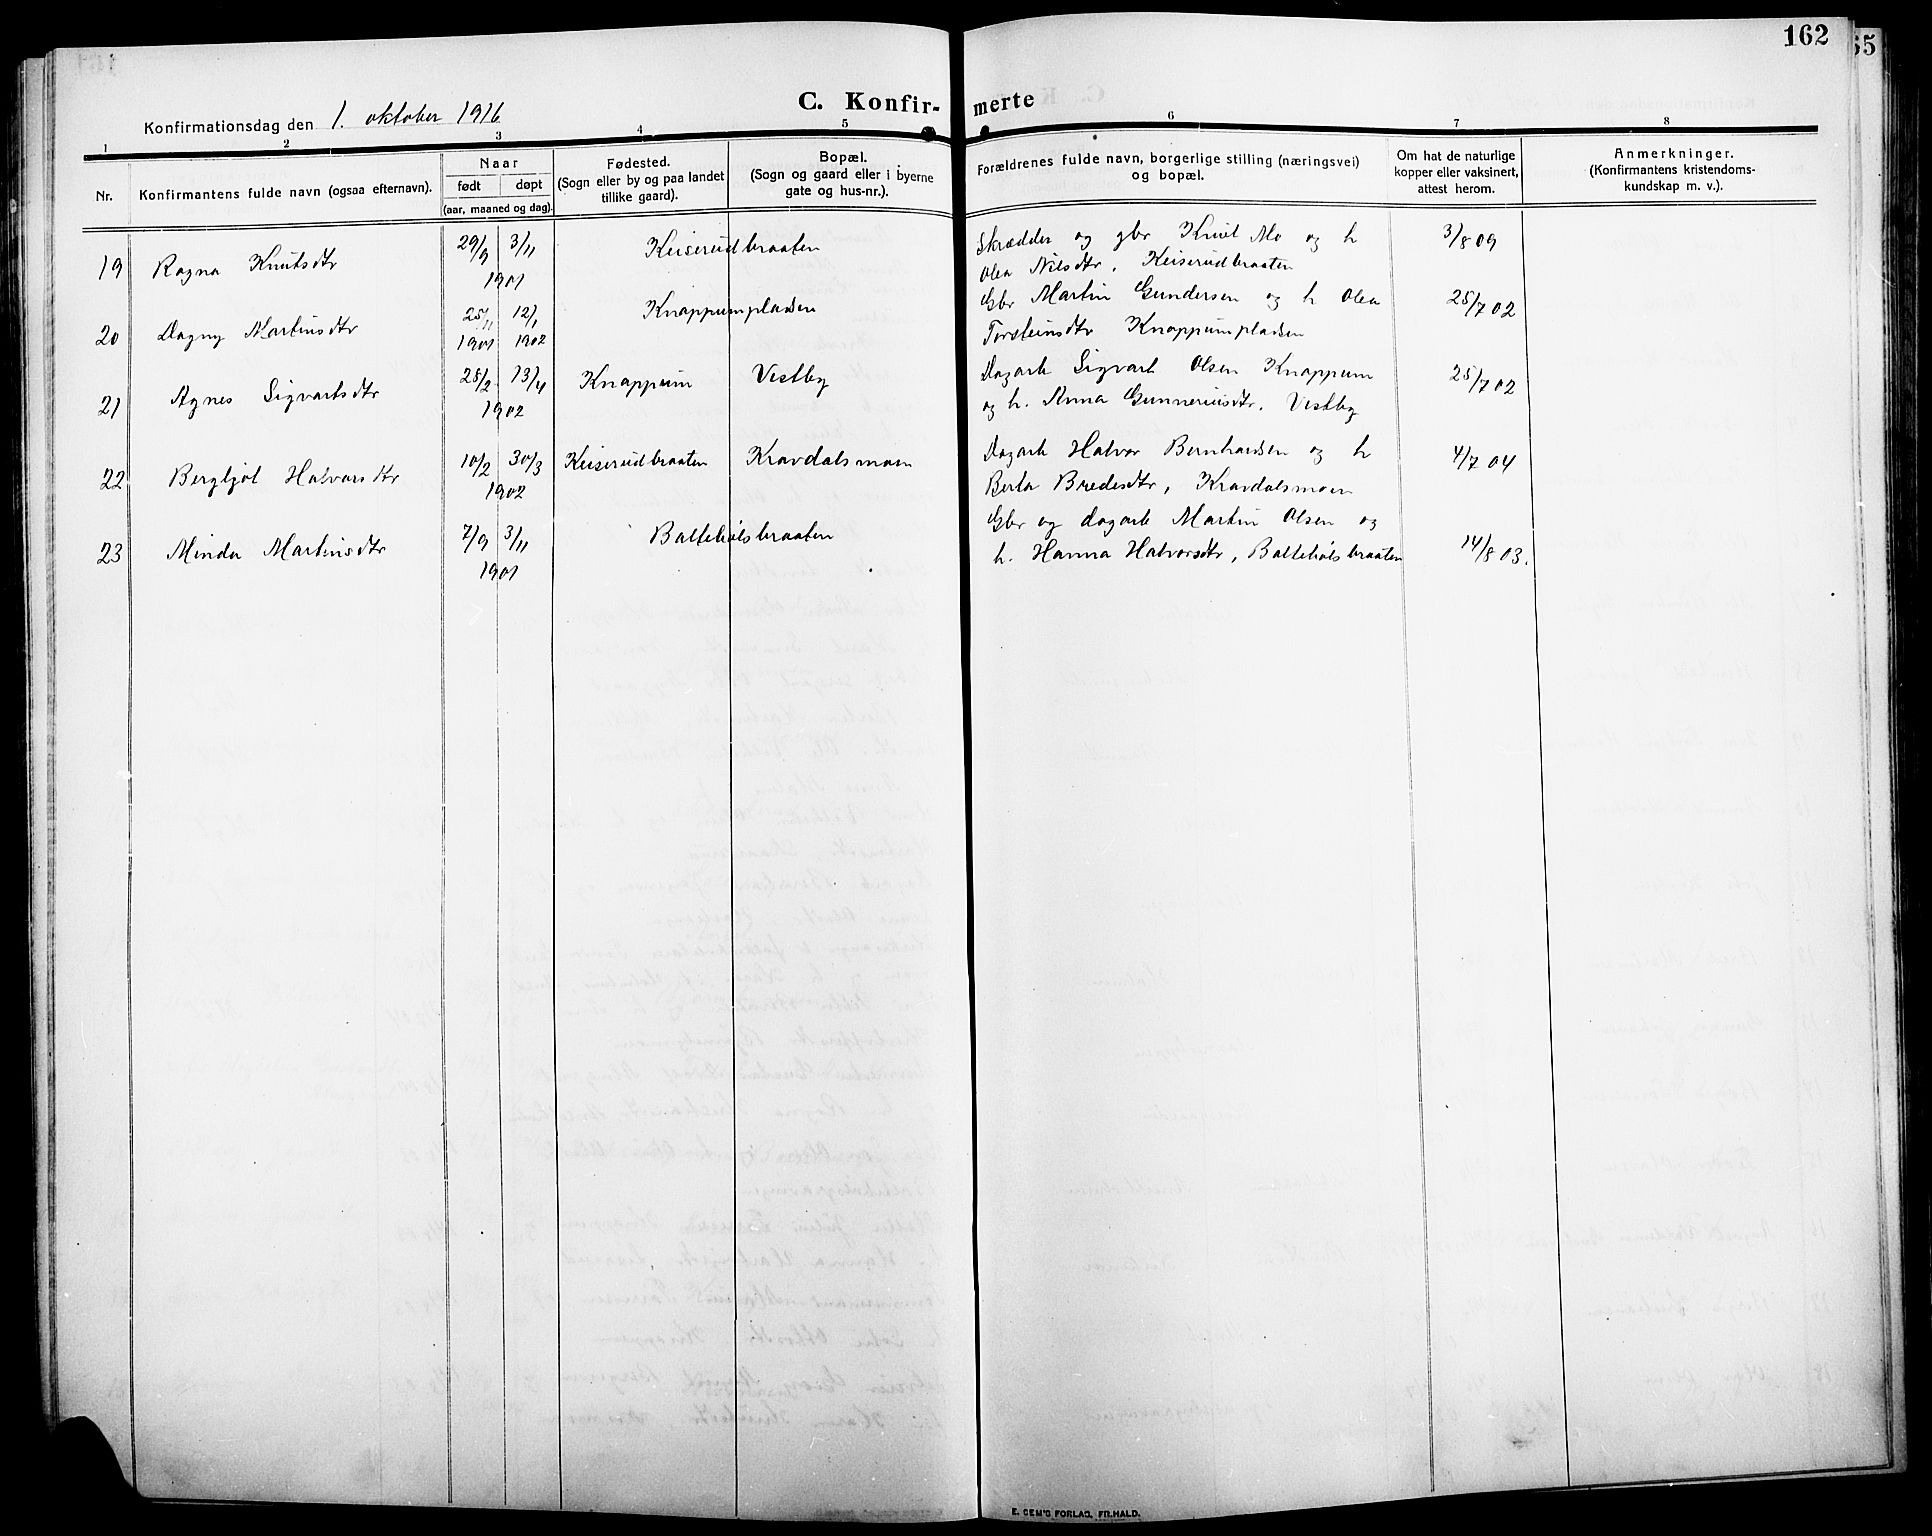 162
65
C. Konfir- merte
Konfirmationsdag den 1. oktober 1916
1 2 3 4 5 6 7 8
Nr.
Konfirmantens fulde navn (ogsaa efternavn).
Naar
født døpt
(aar, maaned og dag).
Fødested.
(Sogn eller by og paa landet
tillike gaard).
Bopæl.
(Sogn og gaard eller i byerne
gate og hus-nr.).
Forældrenes fulde navn, borgerlige stilling (næringsvei)
og bopæl.
Om hat de naturlige
kopper eller vaksinert,
attest herom.
Anmerkninger.
(Konfirmantens kristendoms-
kundskap m. v.).
19 Ragna Knutsdtr 29/9 3/11 1901 Keiserudbraaten
Skrædder og gbr Knut Mo og h
Olea Nilsdtr, Keiserudbraaten
3/8 09
20 Dagny Martinsdtr 25/11 1901 12/1 1902 Knappumpladsen
Gbr Martin Gundersen og h Olea
Torsteinsdtr Knappumpladsen
25/7 02
21 Agnes Sigvartsdtr 25/2 13/4 1902 Knappum Vestby
Dagarb Sigvart Olsen Knappum
og h. Anna Gunneriusdtr, Vestby
25/7 02
22 Bergljot Halvorsdtr 10/2 30/3 1902 Keiserudbraaten Kravdalsmoen
Dagarb Halvor Bernhardsen og h
Berta Bredesdtr, Kravdalsmoen
4/7 04
23 Minda Martinsdtr 7/9 3/11 1901 Balteholsbraaten
Gbr og dagarb Martin Olsen og
h. Hanna Halvorsdtr, Balteholsbraaten
14/8 03.
E. SEM'S FORLAG, FR.HALD.